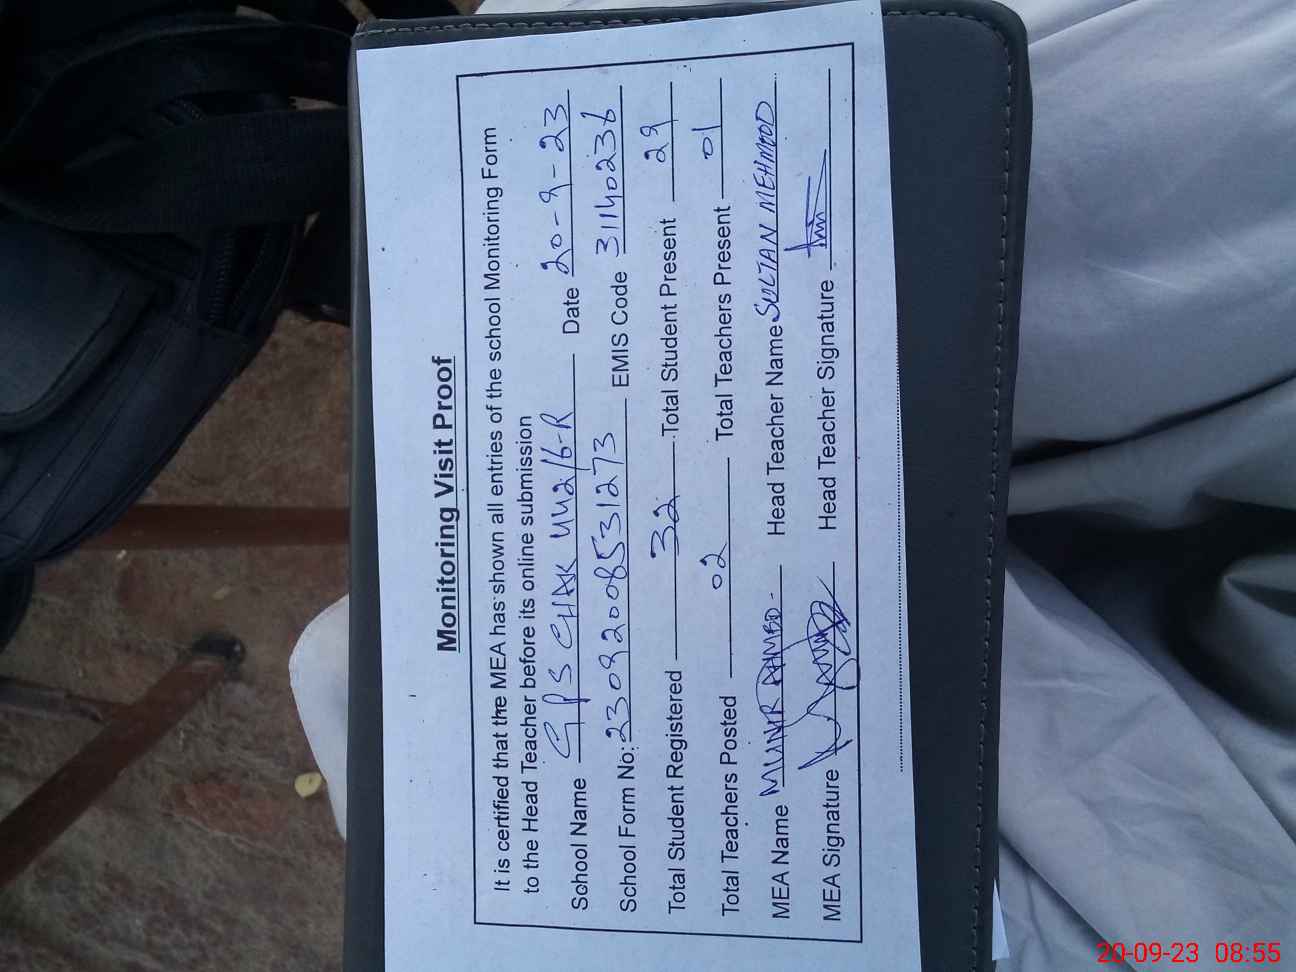 Monitoring Visit Proof
It is certified that the MEA has shown all entries of the school Monitoring Form
to the Head Teacher before its online submission
School Name GPS CHAK 442/6-R Date 20-9-23
School Form No: 23092008531273 EMIS Code 31140236
Total Student Registered 32 Total Student Present 29
Total Teachers Posted 02 Total Teachers Present 01
MEA Name MUNIR AHMED- Head Teacher Name SULTAN MEHMOOD
MEA Signature Head Teacher Signature
20-09-23 08:55